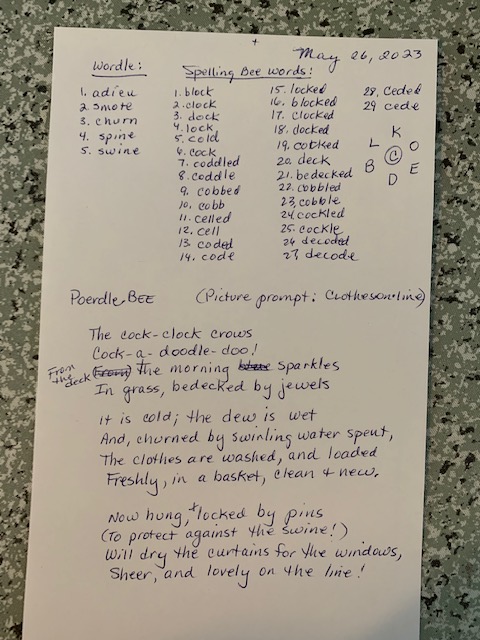 May 26, 2023
Wordle:
1. adieu
2. smote
3. churn
4. spine
5. swine
Spelling Bee words:
1. block
2. clock
3. dock
4. lock
5. cold
6. cock
7. coddled
8. coddle
9. cobbed
10. cobb
11. celled
12. cell
13. coded
14. code
15. locked
16. blocked
17. clocked
18. docked
19. cocked
20. deck
21. bedecked
22. cobbled
23. cobble
24. cockled
25. cockle
26. decoded
27. decode
28. ceded
29. cede
K
L O
C
B E
D
Poerdle BEE (Picture prompt: Clotheson-line)
The cock-clock crows
Cock-a-doodle-doo!
From the deck (From) The morning sparkles
In grass, bedecked by jewels
It is cold; the dew is wet
And, churned by swirling water spent,
The clothes are washed, and loaded
Freshly, in a basket, clean + new.
Now hung, + locked by pins
(To protect against the swine!)
Will dry the curtains for the windows,
Sheer, and lovely on the line!